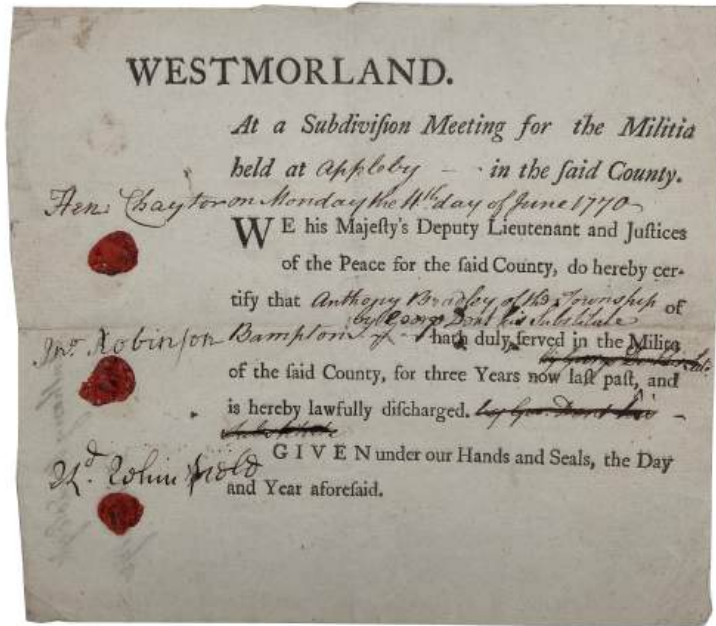 WESTMORLAND.
At a Subdiviſion Meeting for the Militia
held at Appleby - - in the ſaid County.
Hen: Chaytor on Monday the 11th day of June 1770
WE his Majeſty's Deputy Lieutenant and Juſtices
of the Peace for the ſaid County, do hereby cer-
tify that Anthony Bradley of the Township of
by George Dent his Substitute
Jno. Robinson Bampton hath duly ſerved in the Militia
of the ſaid County, for three Years now laſt paſt, and
is hereby lawfully diſcharged. by Geo Dent his
Substitute
GIVEN under our Hands and Seals, the Day
and Year aforeſaid.